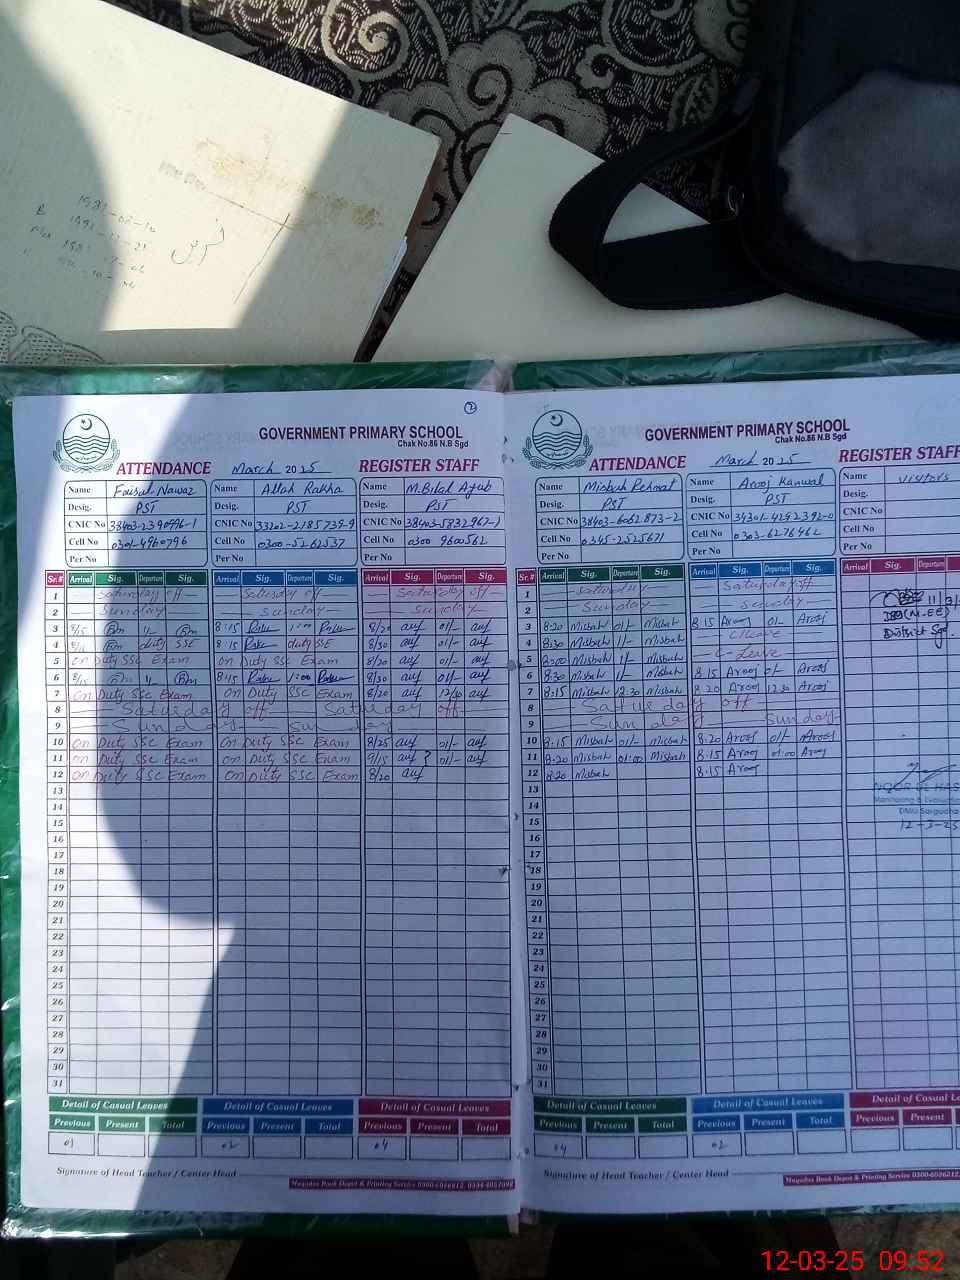 نرس
2
GOVERNMENT PRIMARY SCHOOL
Chak No.86 N.B Sgd
ATTENDANCE March 2025 REGISTER STAFF
Name Faisal Nawaz Name Allah Rakha Name M.Bilal Ayub
Desig. PST Desig. PST Desig. PST
CNIC No 38403-2390996-1 CNIC No 33202-2185739-9 CNIC No 38403-5832967-1
Cell No 0301-4960796 Cell No 0300-5262537 Cell No 0300 9600562
Per No Per No Per No
Sr.# Arrival Sig. Departure Sig. Arrival Sig. Departure Sig. Arrival Sig. Departure Sig.
1 Saturday off Saturday off Saturday off
2 Sunday Sunday Sunday
3 8/15 1/- 8:15 1:00 8/20 01/-
4 duty SSC 8:15 duty SSC 8/30 01/-
5 on Duty SSC Exam on Duty SSC Exam 8/20 01/-
6 8/15 1/- 8:15 1:00 8/30 01/-
7 on Duty SSC Exam on Duty SSC Exam 8/20 12/30
8 Saturday off Saturday off
9 Sunday Sunday
10 on Duty SSC Exam on Duty SSC Exam 8/25 01/-
11 on Duty SSC Exam on Duty SSC Exam 9/15 01/-
12 on Duty SSC Exam on Duty SSC Exam 8/20
13
14
15
16
17
18
19
20
21
22
23
24
25
26
27
28
29
30
31
Detail of Casual Leaves Detail of Casual Leaves Detail of Casual Leaves
Previous Present Total Previous Present Total Previous Present Total
01 02 04
Signature of Head Teacher / Center Head
Muqadas Book Depot & Printing Service 0300-6036212,
GOVERNMENT PRIMARY SCHOOL
Chak No.86 N.B Sgd
ATTENDANCE March 2025 REGISTER STAFF
Name Misbah Rehmat Name Arooj Kanwal Name visitors
Desig. PST Desig. PST Desig.
CNIC No 38403-6062873-2 CNIC No 34301-4292392-0 CNIC No
Cell No 0345-2525671 Cell No 0303-6276462 Cell No
Per No Per No Per No
Sr.# Arrival Sig. Departure Sig. Arrival Sig. Departure Sig. Arrival Sig. Departure
1 Saturday Saturday off
2 Sunday Sunday
3 8:20 Misbah 01/- Misbah 8:15 Arooj 01/- Arooj
4 8:30 Misbah 1/- Misbah C Leave
5 8:00 Misbah 1/- Misbah C-Leave
6 8:30 Misbah 1/- Misbah 8:15 Arooj 01/- Arooj
7 8:15 Misbah 12:30 Misbah 8:20 Arooj 12:30 Arooj
8 Saturday off
9 Sunday Sunday
10 8:15 Misbah 01/- Misbah 8:20 Arooj 01/- Arooj
11 8:20 Misbah 01:00 Misbah 8:15 Arooj 01:00 Arooj
12 8:20 Misbah 8:15 Arooj
13
14
15
16
17
18
19
20
21
22
23
24
25
26
27
28
29
30
31
11/3/
(M.EE)
District Sgd.
NOOR UL HAS
Monitoring & Evaluation
DMU Sargodha
12-3-25
Detail of Casual Leaves Detail of Casual Leaves Detail of Casual
Previous Present Total Previous Present Total Previous Present
04 02
Signature of Head Teacher / Center Head
Muqadas Book Depot & Printing Service 0300-6036212,
12-03-25 09:52